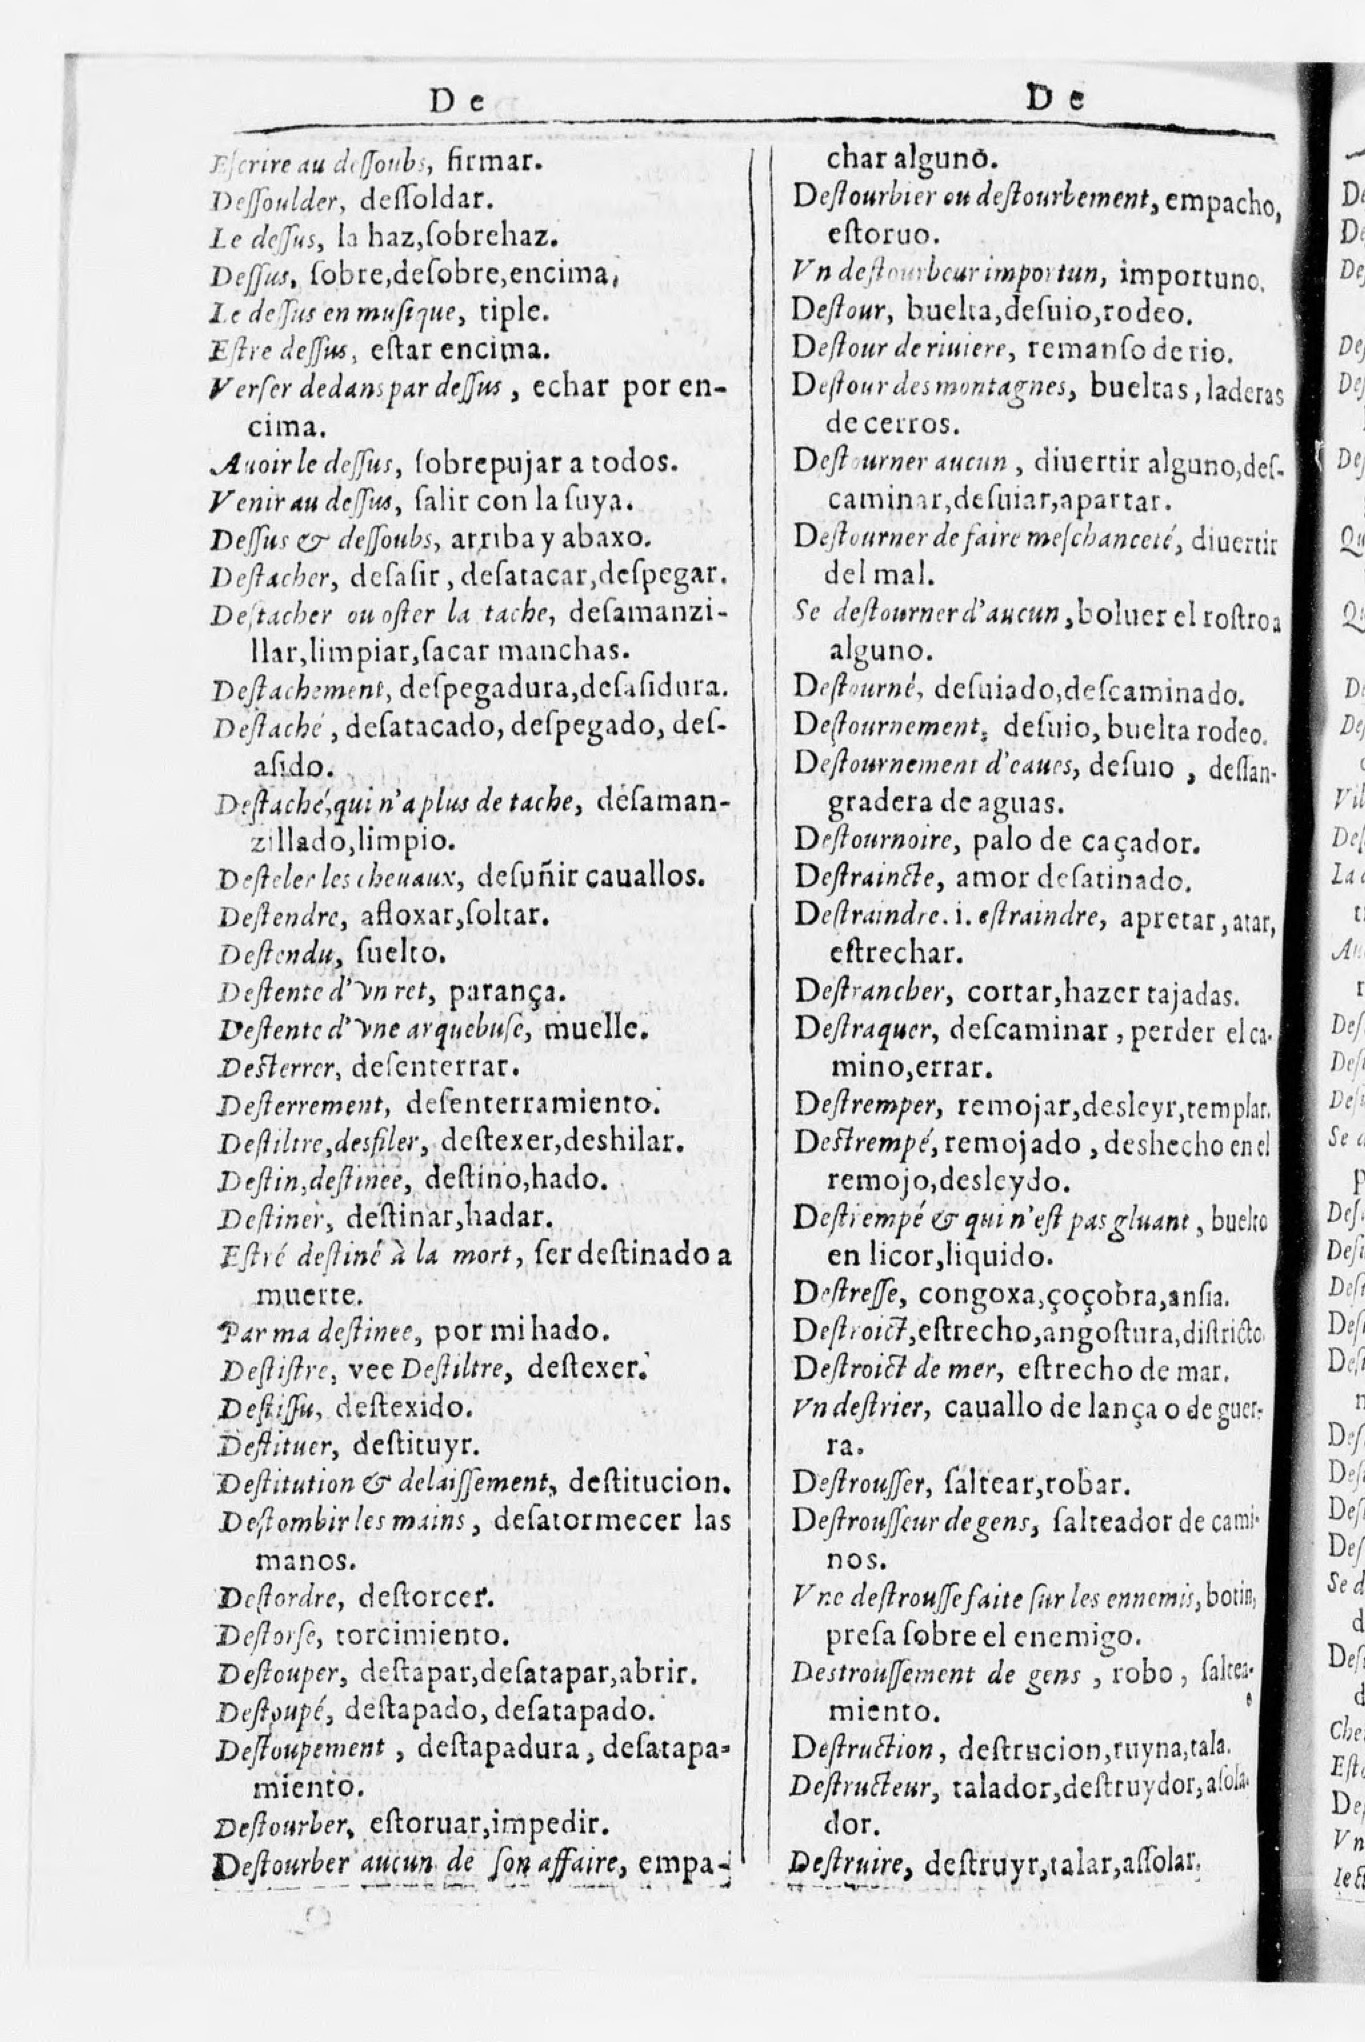 De
Escrire au dessoubs, firmar.
Deſſoulder, deſſoldar.
Le deſſus, la haz,ſobrehaz.
Deſſus, ſobre,deſobre,encima,
Le deſſus en muſique, tiple.
Eſtre deſſus, eſtar encima.
Verſer dedans par deſſus, echar por en-
cima.
Auoir le deſſus, ſobrepujar a todos.
Venir au deſſus, ſalir con la ſuya.
Deſſus & deſſoubs, arriba y abaxo.
Deſtacher, deſaſir, deſatacar,deſpegar.
Deſtacher ou oſter la tache, deſamanzi-
llar,limpiar,ſacar manchas.
Deſtachement, deſpegadura,deſaſidura.
Deſtaché, deſatacado, deſpegado, deſ-
aſido.
Deſtaché,qui n'a plus de tache, deſaman-
zillado,limpio.
Deſteler les cheuaux, deſuñir cauallos.
Deſtendre, afloxar,ſoltar.
Deſtendu, ſuelto.
Deſtente d'vn ret, parança.
Deſtente d'vne arquebuſe, muelle.
Deſterrer, deſenterrar.
Deſterrement, deſenterramiento.
Deſtiltre,desfiler, deſtexer,deshilar.
Deſtin,deſtinee, deſtino,hado.
Deſtiner, deſtinar,hadar.
Eſtré deſtiné à la mort, ſer deſtinado a
muerte.
Par ma deſtinee, por mi hado.
Deſtiſtre, vee Deſtiltre, deſtexer.
Deſtiſſu, deſtexido.
Deſtituer, deſtituyr.
Deſtitution & delaiſſement, deſtitucion.
Deſtombir les mains, deſatormecer las
manos.
Deſtordre, deſtorcer.
Deſtorſe, torcimiento.
Deſtouper, deſtapar,deſatapar,abrir.
Deſtoupé, deſtapado, deſatapado.
Deſtoupement, deſtapadura, deſatapa-
miento.
Deſtourber, eſtoruar,impedir.
Deſtourber aucun de ſon affaire, empa-
De
char alguno.
Deſtourbier ou deſtourbement, empacho,
eſtoruo.
Vn deſtourbeur importun, importuno.
Deſtour, buelta,deſuio,rodeo.
Deſtour de riuiere, remanſo de rio.
Deſtour des montagnes, bueltas, laderas
de cerros.
Deſtourner aucun, diuertir alguno,deſ-
caminar,deſuiar,apartar.
Deſtourner de faire meſchanceté, diuertir
del mal.
Se deſtourner d'aucun, boluer el roſtro a
alguno.
Deſtourné, deſuiado,deſcaminado.
Deſtournement, deſuio, buelta rodeo.
Deſtournement d'eaues, deſuio, deſſan-
gradera de aguas.
Deſtournoire, palo de caçador.
Deſtraincte, amor deſatinado.
Deſtraindre. i. eſtraindre, apretar, atar,
eſtrechar.
Deſtrancher, cortar,hazer tajadas.
Deſtraquer, deſcaminar, perder el ca-
mino,errar.
Deſtremper, remojar,desleyr,templar.
Deſtrempé, remojado, deshecho en el
remojo,desleydo.
Deſtrempé & qui n'eſt pas gluant, buelto
en licor,liquido.
Deſtreſſe, congoxa,çoçobra,anſia.
Deſtroict,eſtrecho,angoſtura,diſtricto.
Deſtroict de mer, eſtrecho de mar.
Vn deſtrier, cauallo de lança o de guer-
ra.
Deſtrouſſer, ſaltear,robar.
Deſtrouſſeur de gens, ſalteador de cami-
nos.
Vne deſtrouſſe faite ſur les ennemis, botin,
preſa ſobre el enemigo.
Destrouſſement de gens, robo, ſaltea-
miento.
Deſtruction, deſtrucion,ruyna,tala.
Deſtructeur, talador,deſtruydor,aſola-
dor.
Deſtruire, deſtruyr,talar,aſſolar.